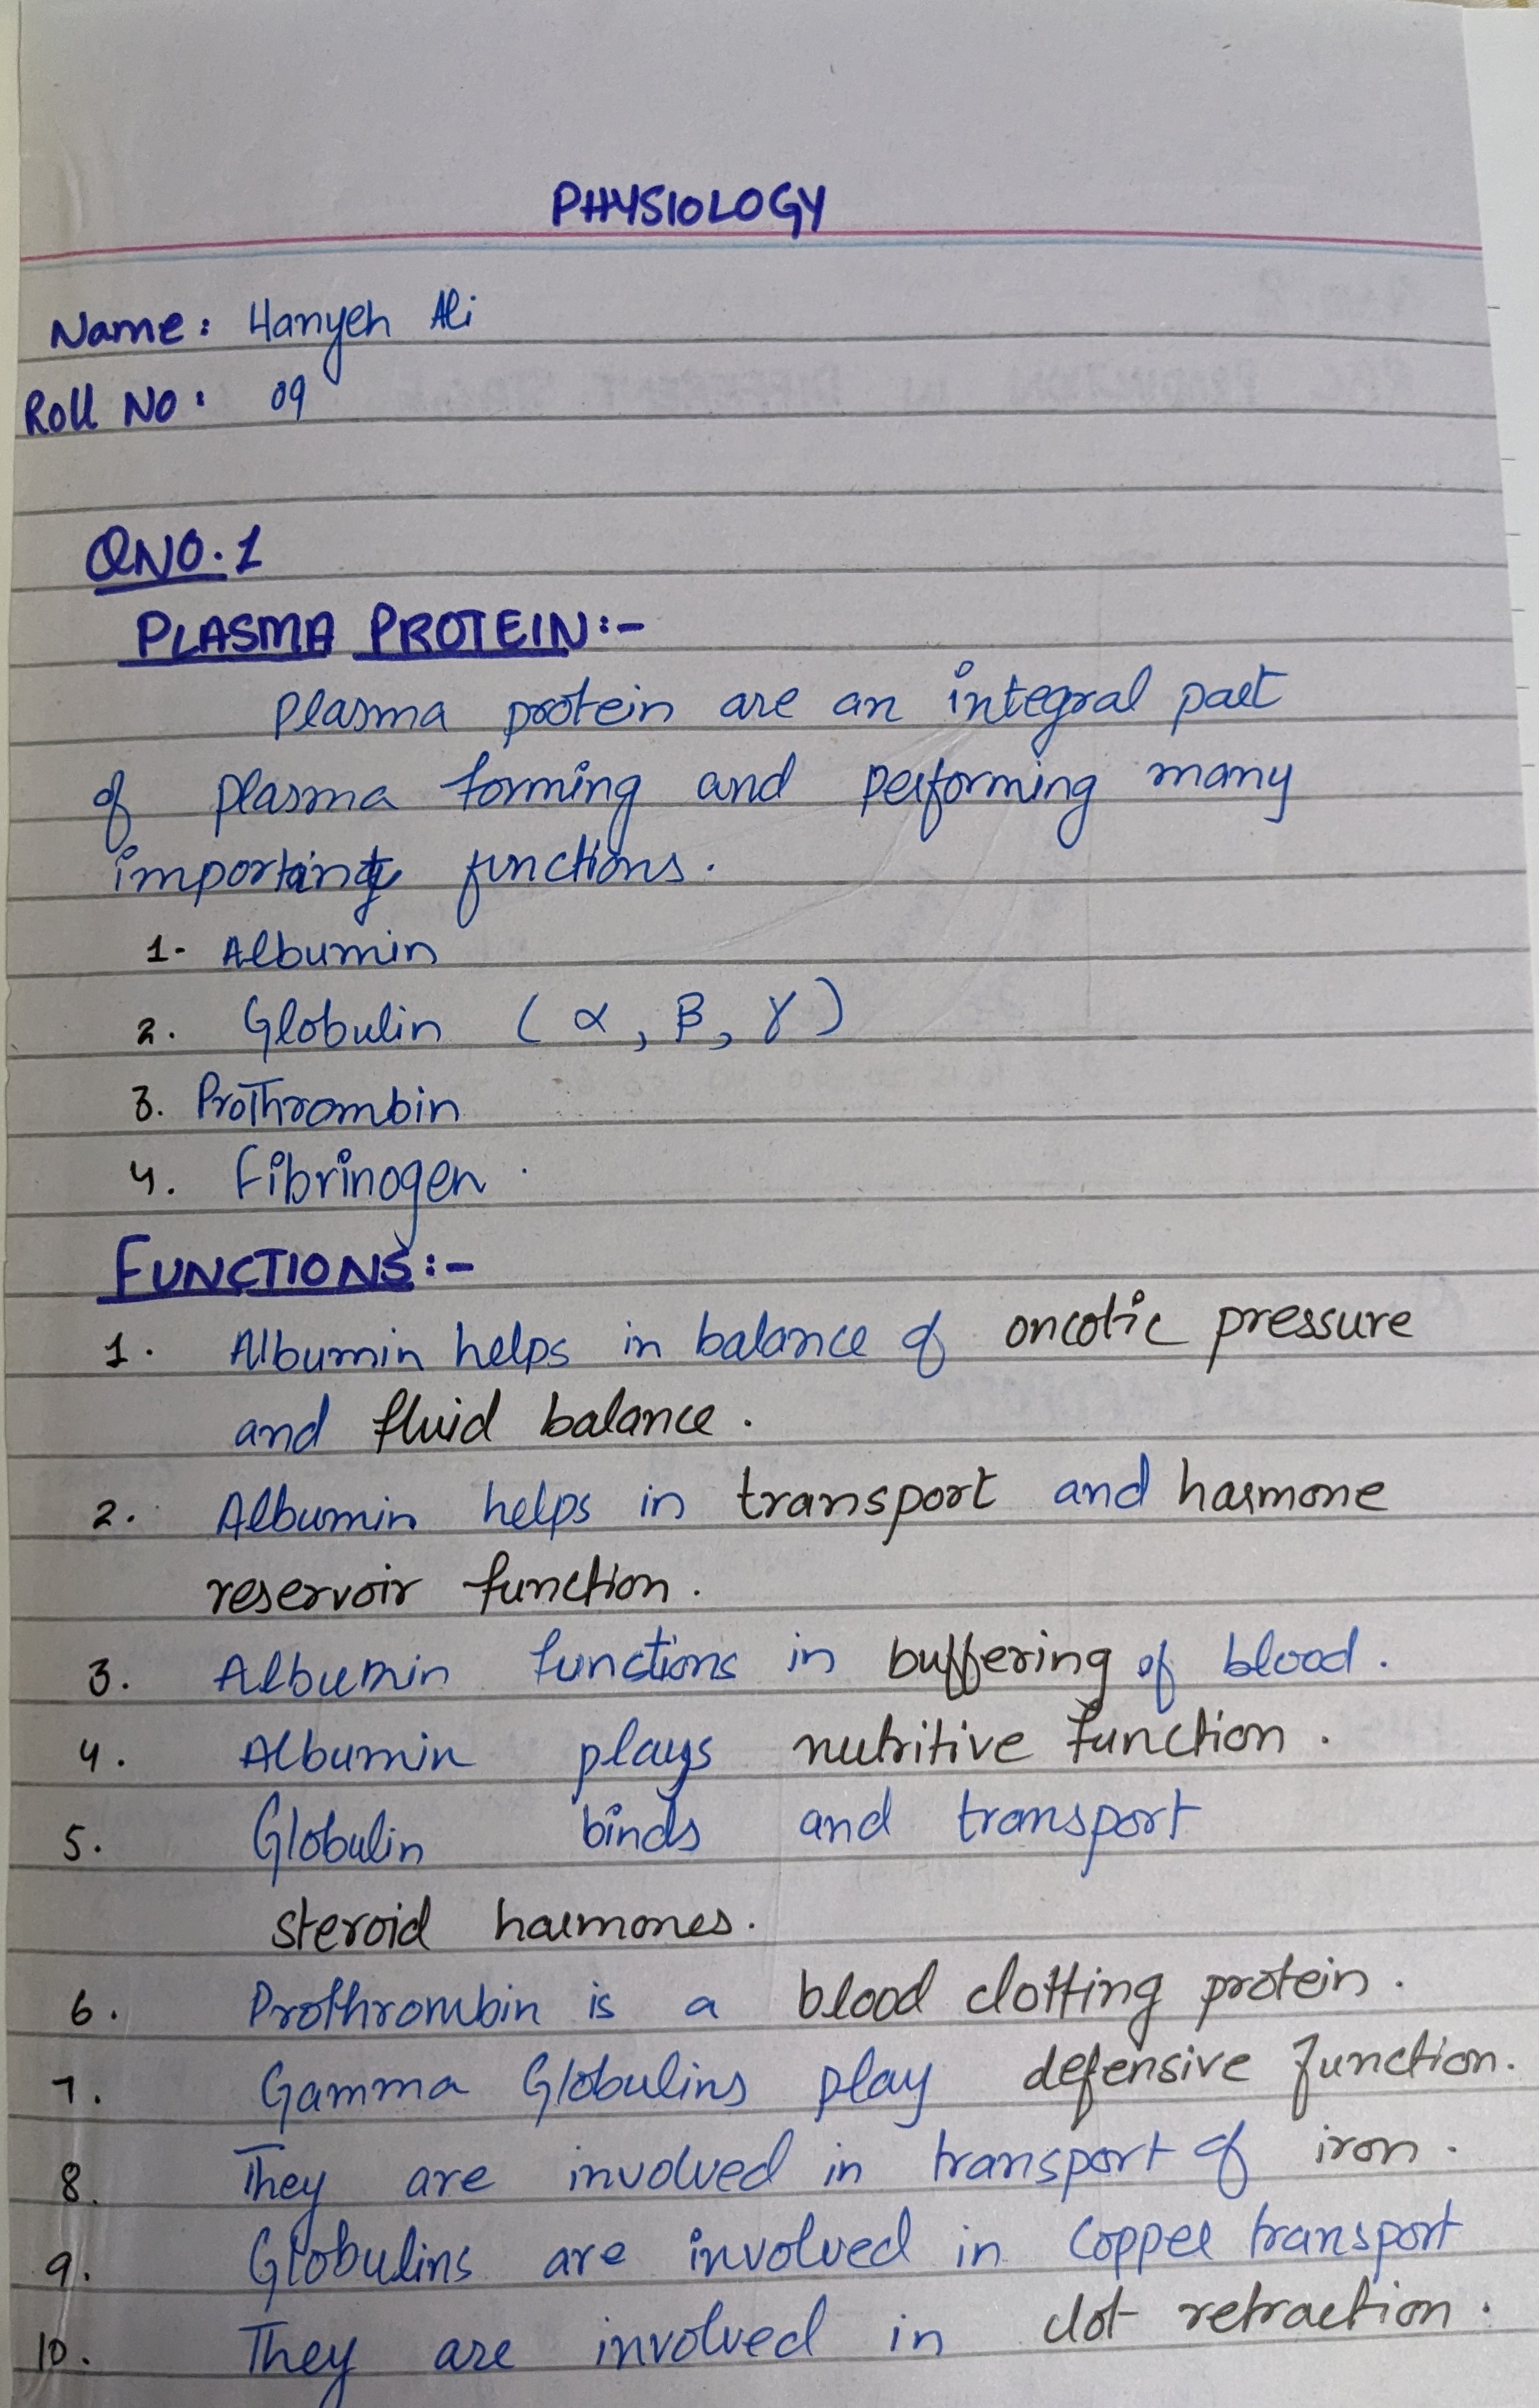 PHYSIOLOGY
Name: Hanyeh Ali
Roll No: 09
QNO.1
PLASMA PROTEIN:-
Plasma protein are an integral part
of plasma forming and performing many
important functions.
1- Albumin
2. Globulin (α, β, γ)
3. Prothrombin
4. Fibrinogen.
FUNCTIONS:-
1. Albumin helps in balance of oncotic pressure
and fluid balance.
2. Albumin helps in transport and harmone
reservoir function.
3. Albumin functions in buffering of blood.
4. Albumin plays nutritive function.
5. Globulin binds and transport
steroid harmones.
6. Prothrombin is a blood clotting protein.
7. Gamma Globulins play defensive function.
8. They are involved in transport of iron.
9. Globulins are involved in Copper transport
10. They are involved in clot retraction.